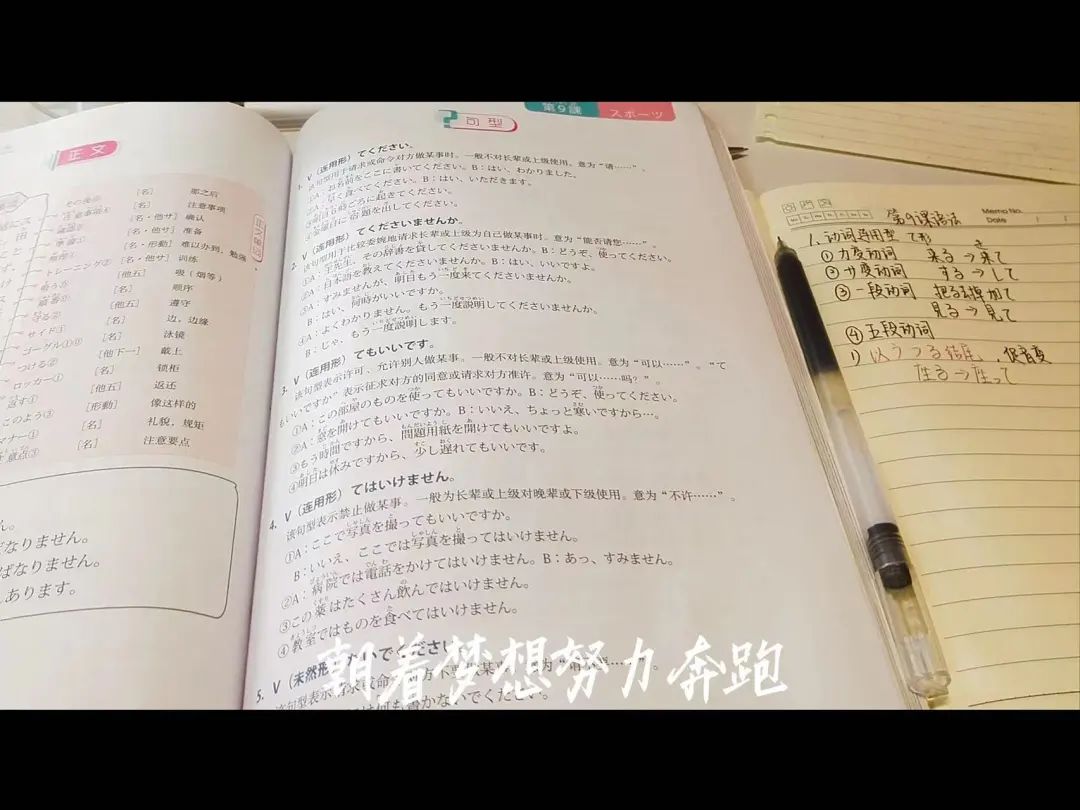 正文
[名] 那之后
[名] 注意事项
[名・他サ] 确认
[名・他サ] 准备
[名・形動] 难以办到, 勉强
トレーニング② [名・他サ] 训练
吸う⓪ [他五] 吸（烟等）
[名] 顺序
守る② [他五] 遵守
サイド① [名] 边, 边缘
ゴーグル①⓪ [名] 泳镜
つける② [他下一] 戴上
ロッカー① [名] 锁柜
返す① [他五] 返还
このよう③ [形動] 像这样的
マナー① [名] 礼貌, 规矩
[名] 注意要点
ん。
ばなりません。
ばなりません。
あります。
第9課 スポーツ
句型
1. V（连用形）てください。
该句型用于请求或命令对方做某事时。一般不对长辈或上级使用。意为“请……”。
①A：お名前をここに書いてください。B：はい、わかりました。
②A：早く食べてください。B：はい、いただきます。
③明日6時ごろに起きてください。
④金曜日に宿題を出してください。
2. V（连用形）てくださいませんか。
该句型用于比较委婉地请求长辈或上级为自己做某事时。意为“能否请您……”。
①A：王先生、その辞書を貸してくださいませんか。B：どうぞ、使ってください。
②A：日本語を教えてくださいませんか。B：はい、いいですよ。
③A：すみませんが、明日もう一度来てくださいませんか。
B：はい、何時がいいですか。
④A：よくわかりません。もう一度説明してくださいませんか。
B：じゃ、もう一度説明します。
3. V（连用形）てもいいです。
该句型表示许可、允许别人做某事。一般不对长辈或上级使用。意为“可以……”。“て
もいいですか”表示征求对方的同意或请求对方准许。意为“可以……吗？”。
①A：この部屋のものを使ってもいいですか。B：どうぞ、使ってください。
②A：窓を開けてもいいですか。B：いいえ、ちょっと寒いですから…。
③もう時間ですから、問題用紙を開けてもいいですよ。
④明日は休みですから、少し遅れてもいいです。
4. V（连用形）てはいけません。
该句型表示禁止做某事。一般为长辈或上级对晚辈或下级使用。意为“不许……”。
①A：ここで写真を撮ってもいいですか。
B：いいえ、ここでは写真を撮ってはいけません。
②A：病院では電話をかけてはいけません。B：あっ、すみません。
③この薬はたくさん飲んではいけません。
④教室ではものを食べてはいけません。
5. V（未然形）ないでください
朝着梦想努力奔跑
Memo No.
Date
第9课语法
1、动词连用型 て形
①カ变动词 来る→来て
②サ变动词 する→して
③一段动词 把る去掉加て
見る→見て
④五段动词
1) 以うつる结尾,促音变
座る→座って